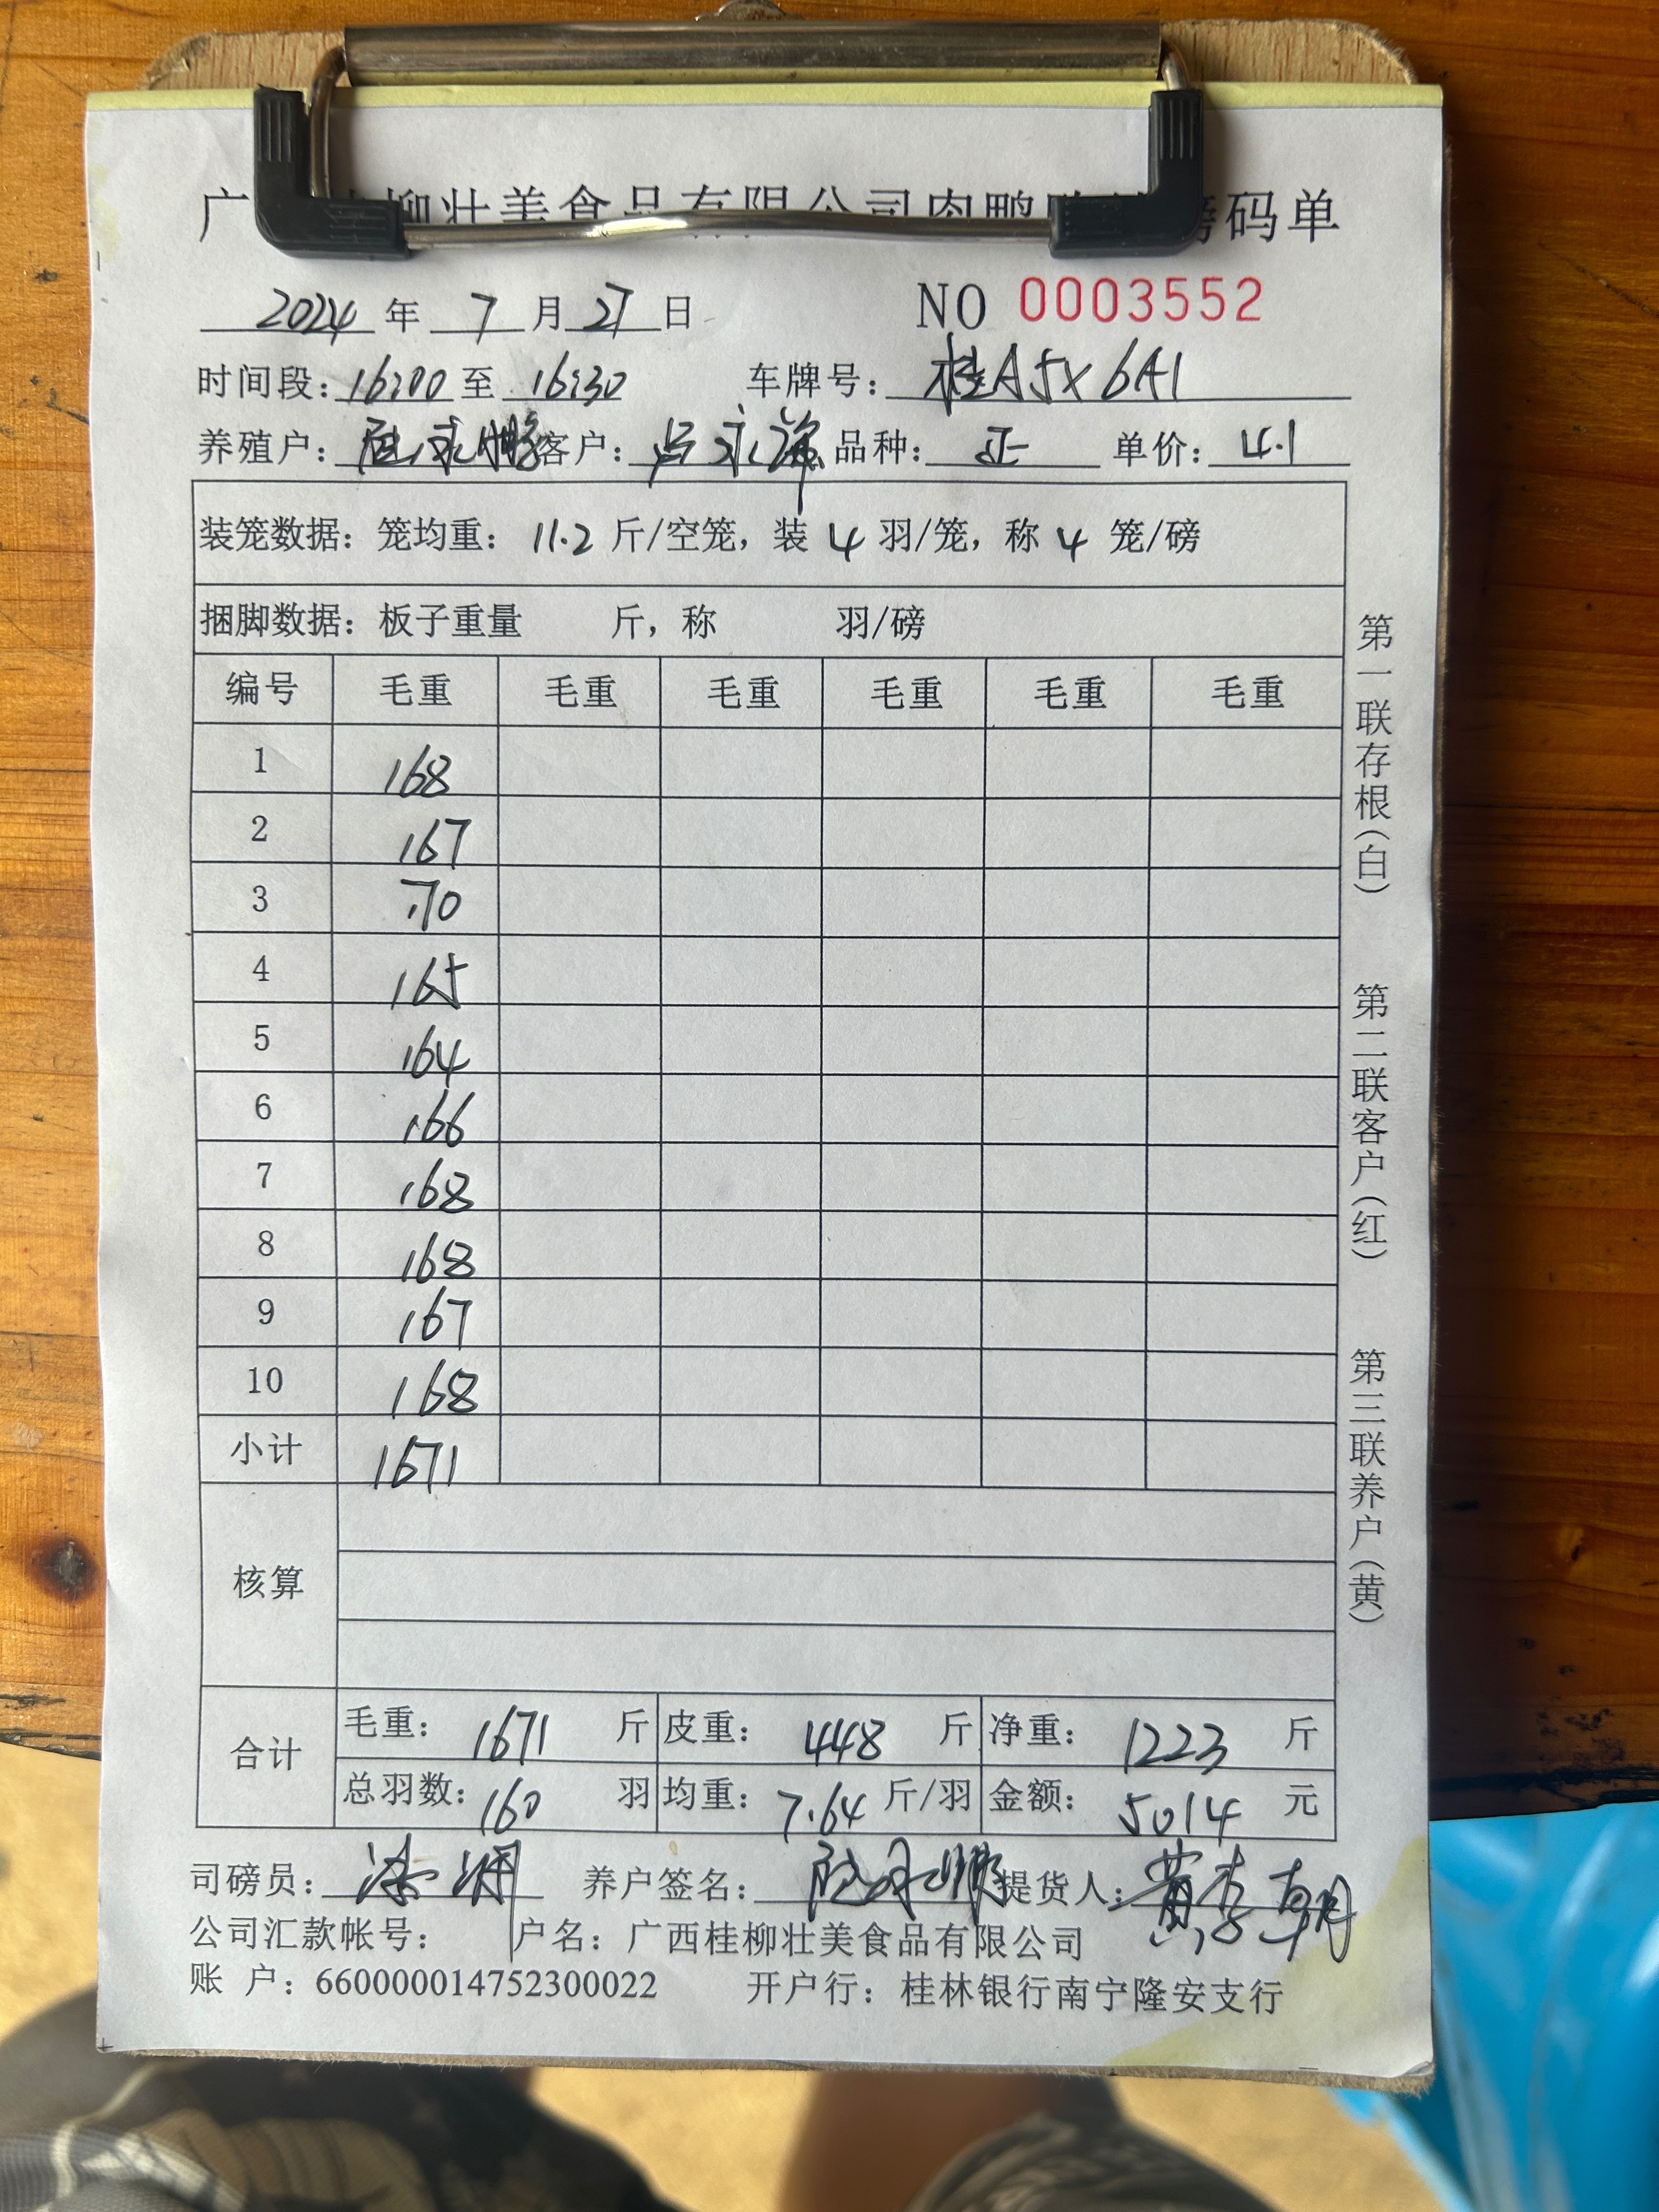 广 柳壮美食品有限公司肉鸭 磅码单
2024 年 7 月 27 日 NO 0003552
时间段：16:00 至 16:30 车牌号：桂A5X6A1
养殖户： 客户： 品种：正 单价：4.1
装笼数据：笼均重：11.2 斤/空笼，装 4 羽/笼，称 4 笼/磅
捆脚数据：板子重量 斤，称 羽/磅
编号 毛重 毛重 毛重 毛重 毛重 毛重
1 168
2 167
3 170
4 165
5 164
6 166
7 168
8 168
9 167
10 168
小计 1671
核算
合计 毛重：1671 斤 皮重：448 斤 净重：1223 斤
总羽数：160 羽 均重：7.64 斤/羽 金额：5014 元
司磅员： 养户签名： 提货人：黄李朝
公司汇款帐号： 户名：广西桂柳壮美食品有限公司
账 户：660000014752300022 开户行：桂林银行南宁隆安支行
第一联存根（白）
第二联客户（红）
第三联养户（黄）